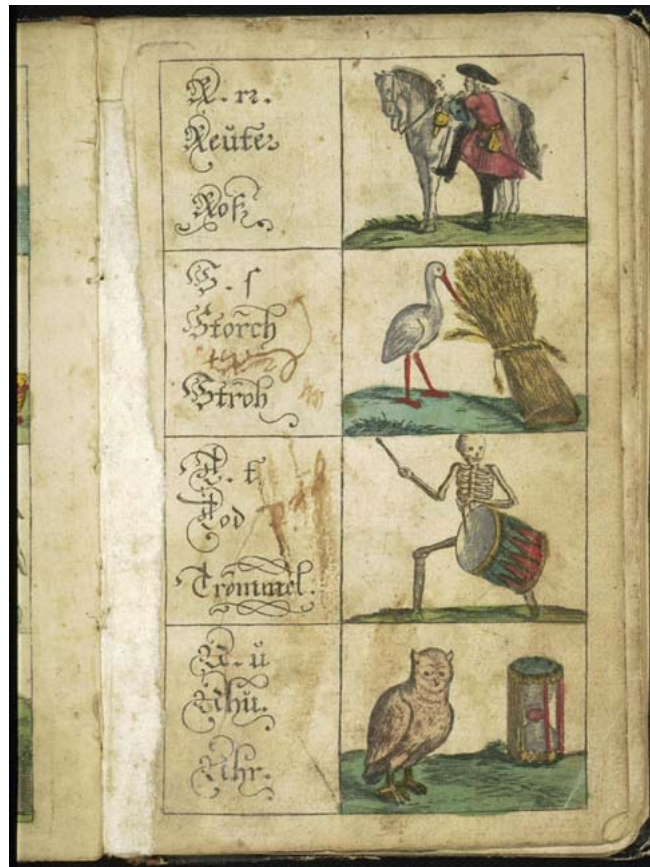 R. rr.
Reuter
Roß
S. ſ
Storch
Stroh
T. t.
Tod
Trommel.
U. ŭ
Uhŭ.
Uhr.